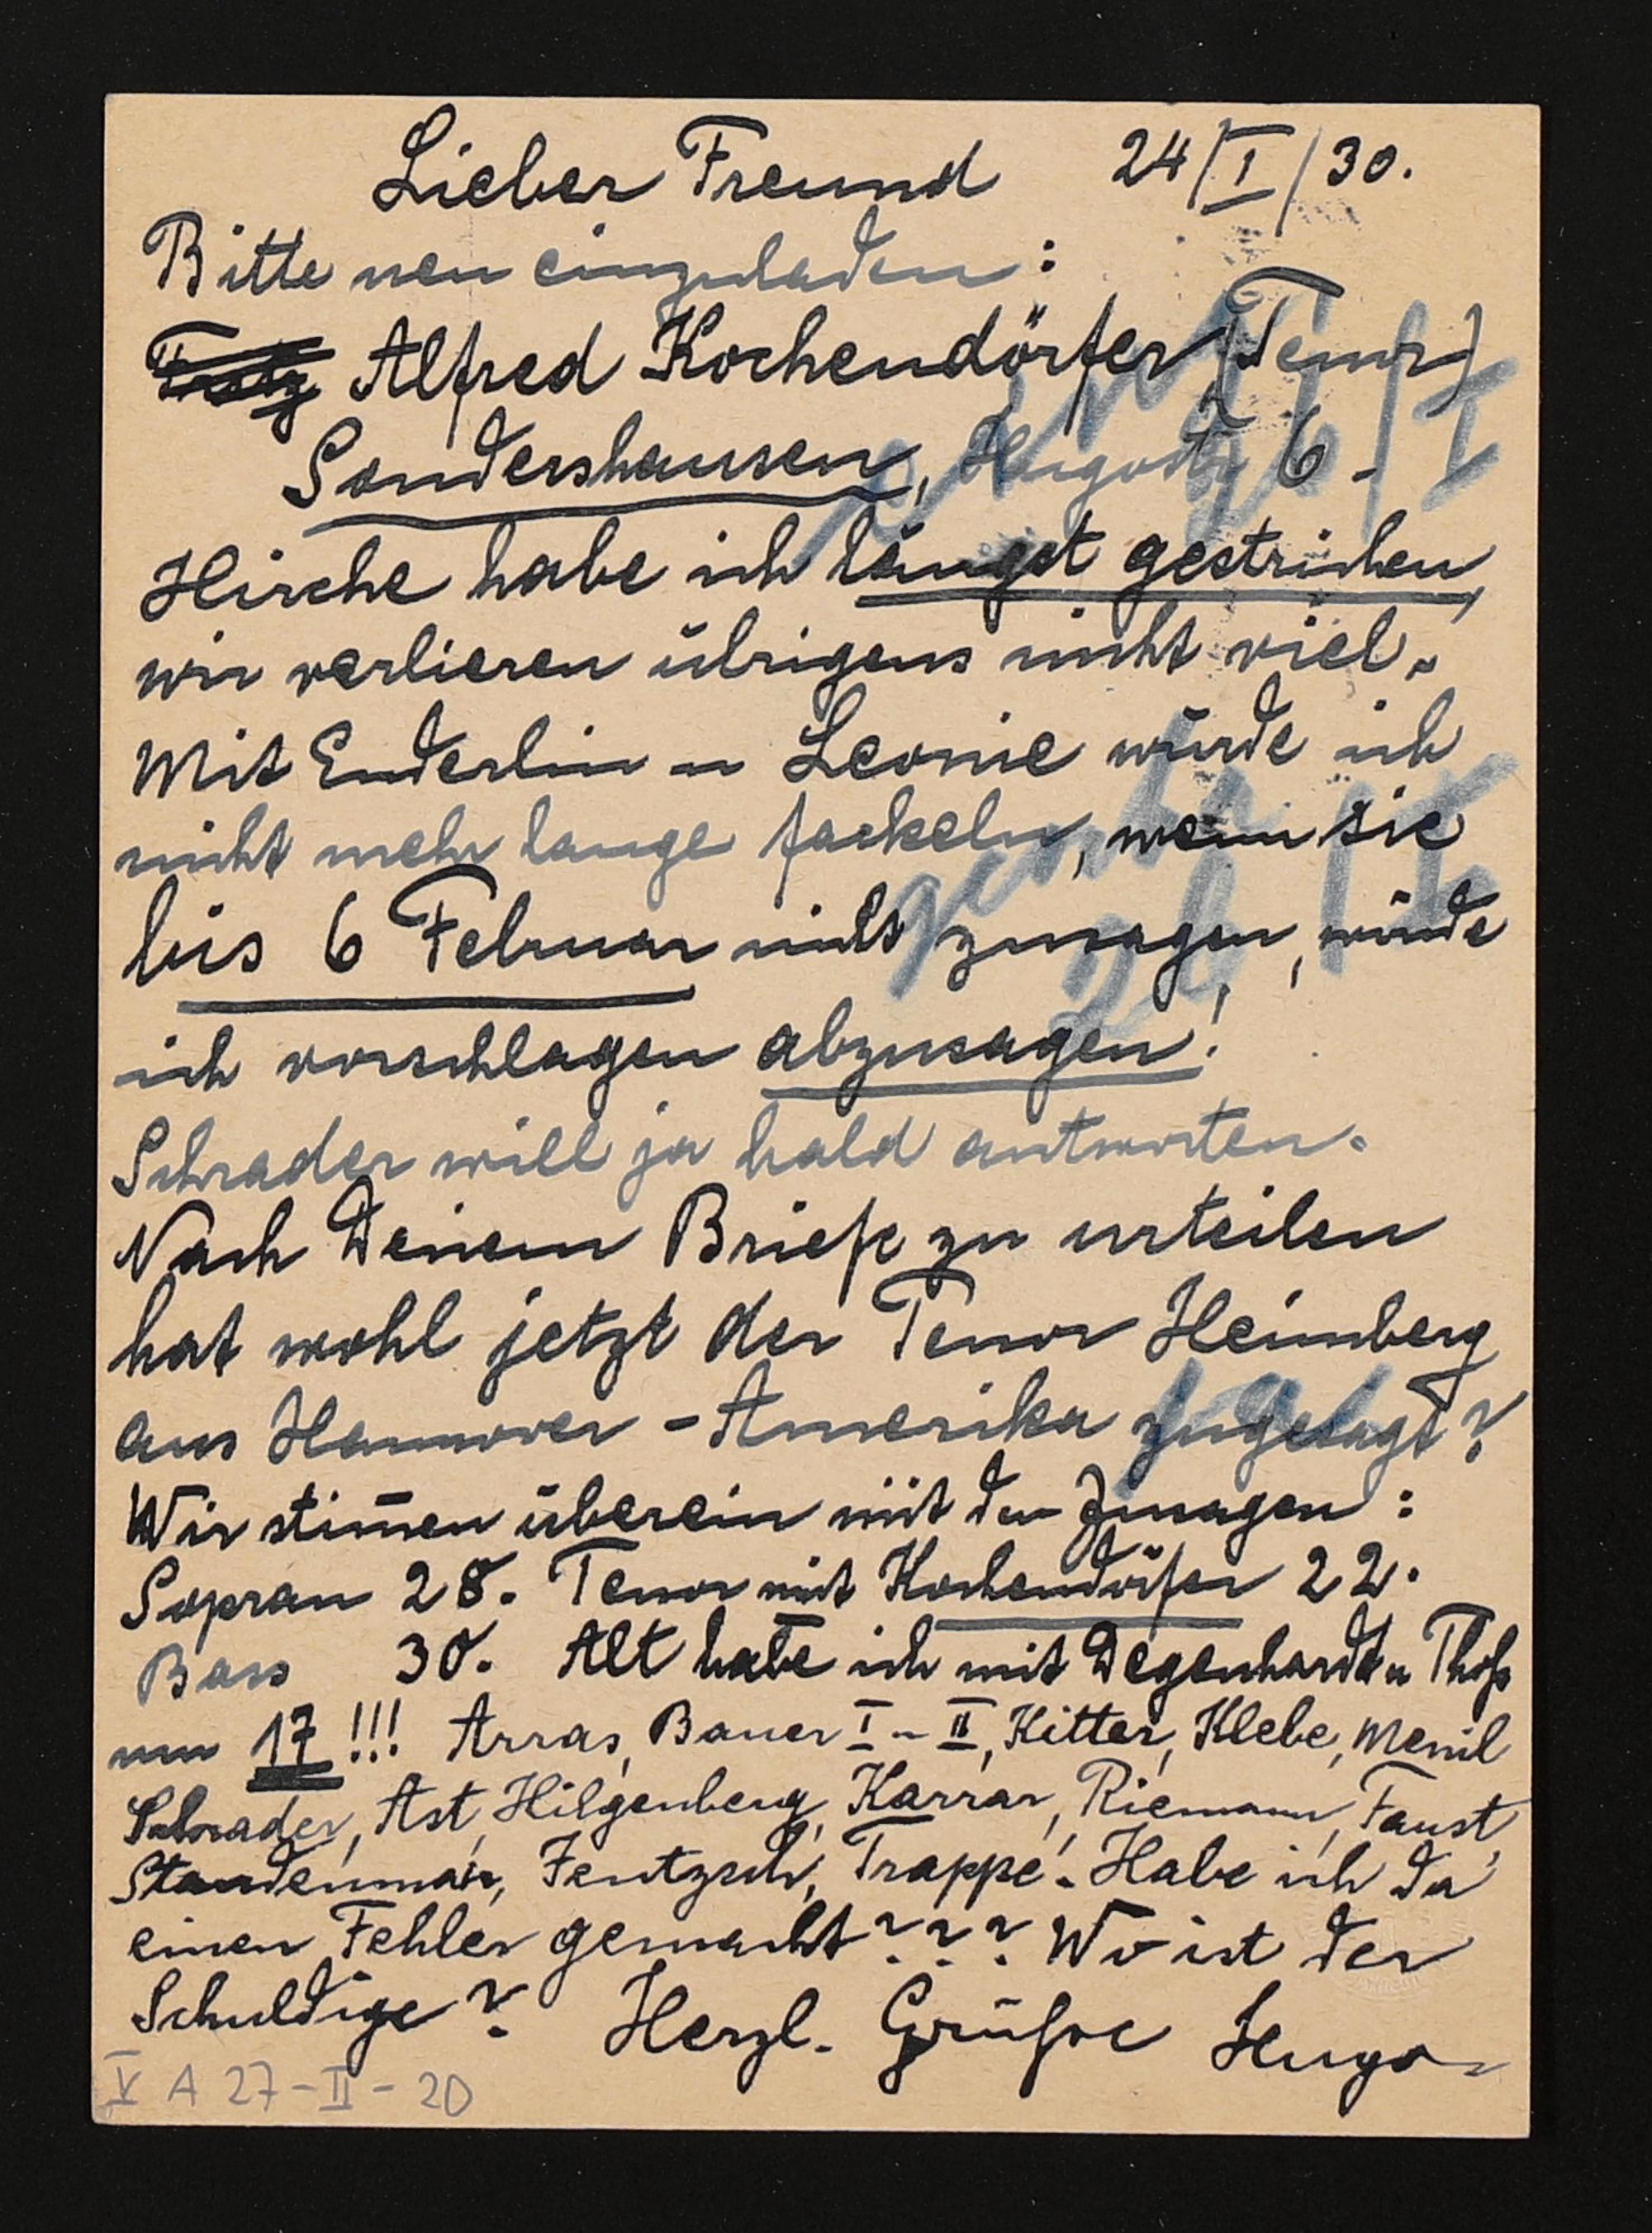 Lieber Freund 24/I/30.
Bitte neu einzuladen:
Alfred Kochendörfer (Tenor)
Sondershausen, Hugostr 6.
Hirche habe ich längst gestrichen,
wir verlieren übrigens nicht viel.
Mit Enderlin u Leonie würde ich
nicht mehr lange fackeln, wenn sie
bis 6 Februar nicht zusagen, würde
ich vorschlagen abzusagen!
Schrader will ja bald antworten.
Nach Deinem Briefe zu urteilen
hat wohl jetzt der Tenor Heimberg
aus Hannover - Amerika zugesagt?
Wir stim̅en überein mit den Zusagen:
Sopran 28. Tenor mit Kochendörfer 22.
Bass 30. Alt habe ich mit Degenhardt u Thoß
nur 17!!! Arras, Bauer I u II, Kitter, Klebe, Menil
Schrader, Ast, Hilgenberg, Karrar, Riemann, Faust,
Staudenmair, Fentzsch, Trappe. Habe ich da
einen Fehler gemacht??? Wo ist der
Schuldige? Herzl. Grüße Hugo
V A 27-II-20